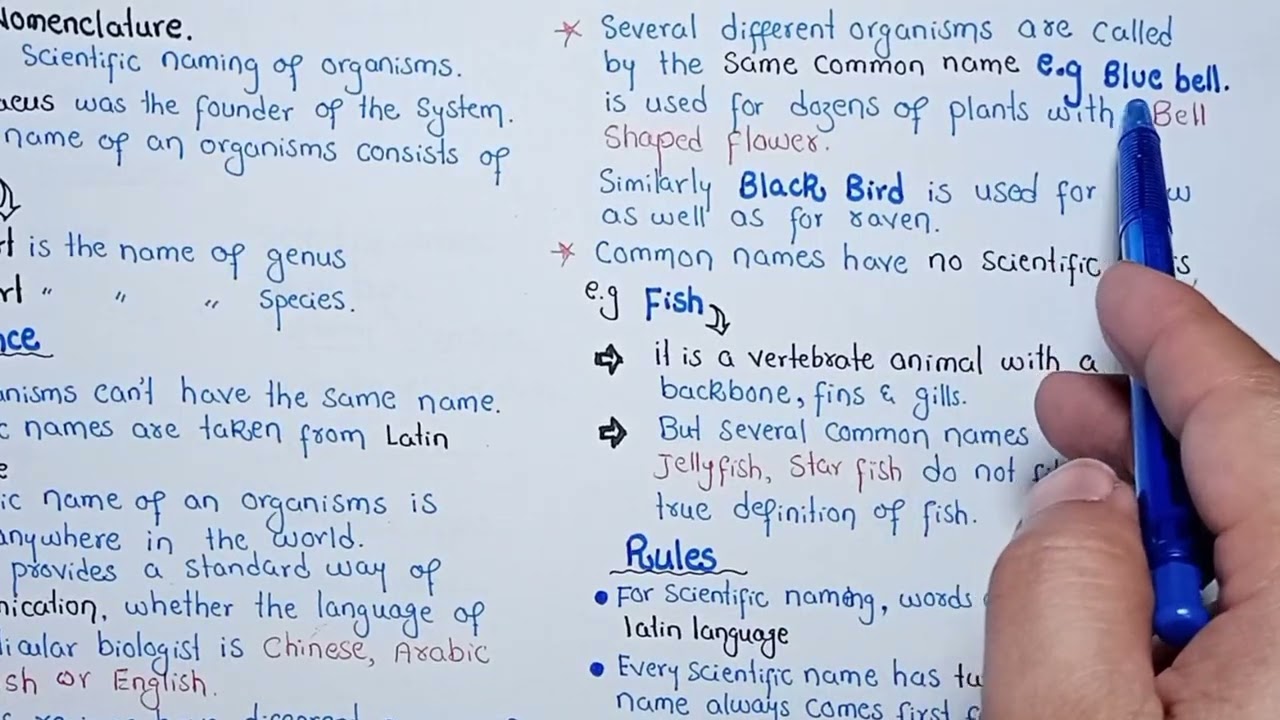 Nomenclature.
Scientific naming of organisms.
was the founder of the System.
name of an organisms consists of
is the name of genus
" " " Species.
can't have the same name.
names are taken from Latin
name of an organisms is
anywhere in the world.
provides a standard way of
whether the language of
biologist is Chinese, Arabic
or English.
Several different organisms are called
by the same common name e.g Blue bell.
is used for dozens of plants with Bell
Shaped flower.
Similarly Black Bird is used for
as well as for raven.
Common names have no scientific
e.g Fish
it is a vertebrate animal with a
backbone, fins & gills.
But several common names
Jellyfish, Star fish do not
true definition of fish.
Rules
For Scientific naming, words
latin language
Every scientific name has
name always comes first